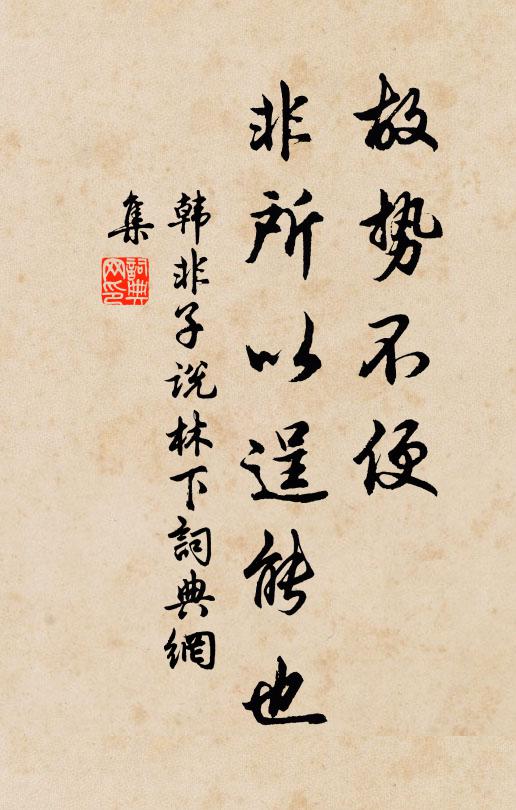 故势不便
非所以逞能也
韩非子说林下词典網
集
詞典
网印